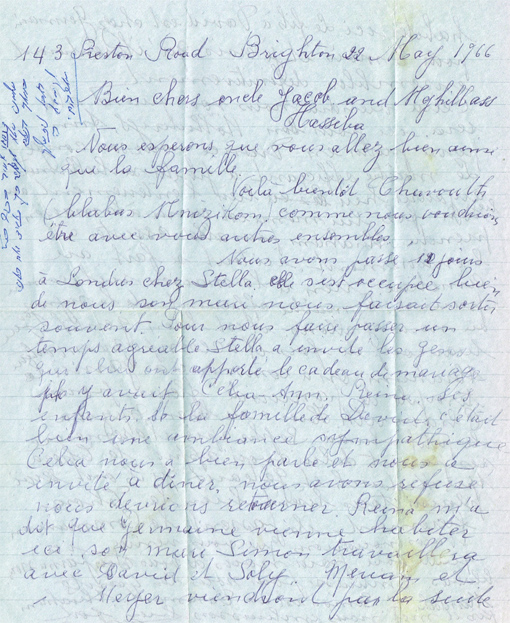 143 Preston Road Brighton 22 May 1966
Bien chers oncle Jacob and Mghilbass
Hassiba
Nous esperons que vous allez bien ainsi
que la famille
Voilà bientôt Chavouth
comme nous voudrions
être avec vous autres ensembles
Nous avons passé 12 jours
à Londres chez Stella, elle s'est occupée bien
de nous son mari nous faisait sortir
souvent Pour nous faire passer un
temps agreable Stella a invité les gens
qui ont apporté le cadeau de mariage
il y avait Celia Ann Reina Ses
enfants la famille de c'était
bien une ambiance sympathique
Celia nous a bien parlé et nous a
invité a diner, nous avons refusé
nous devrions retourner Reina m'a
dit que Germaine vienne habiter
ici son mari Simon travaillera
avec David et Soly. Meriam et
Meyer viendront par la suite